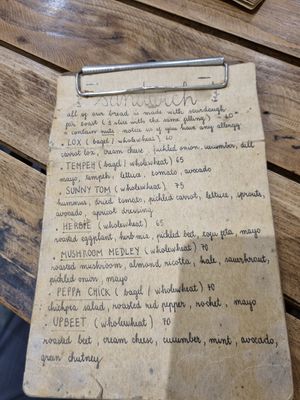 Sandwich
all of our bread is made with sourdough
for toast (1 slice with the same filling) - 10
* contain nuts, notice us if you have any allergy
. LOX (bagel / wholewheat) 60
carrot lox, cream cheese, pickled onion, cucumber, dill
. TEMPEH (bagel / wholewheat) 65
mayo, tempeh, lettuce, tomato, avocado
. SUNNY TOM (wholewheat) 75
hummus, dried tomato, pickled carrot, lettuce, sprouts,
avocado, apricot dressing
. HERBIE (wholewheat) 65
roasted eggplant, herb mix, pickled beet, tofu feta, mayo
. MUSHROOM MEDLEY (wholewheat) 70
roasted mushroom, almond ricotta, kale, sauerkraut,
pickled onion, mayo
. PEPPA CHICK (bagel / wholewheat) 70
chickpea salad, roasted red pepper, rocket, mayo
. UPBEET (wholewheat) 70
roasted beet, cream cheese, cucumber, mint, avocado,
green chutney